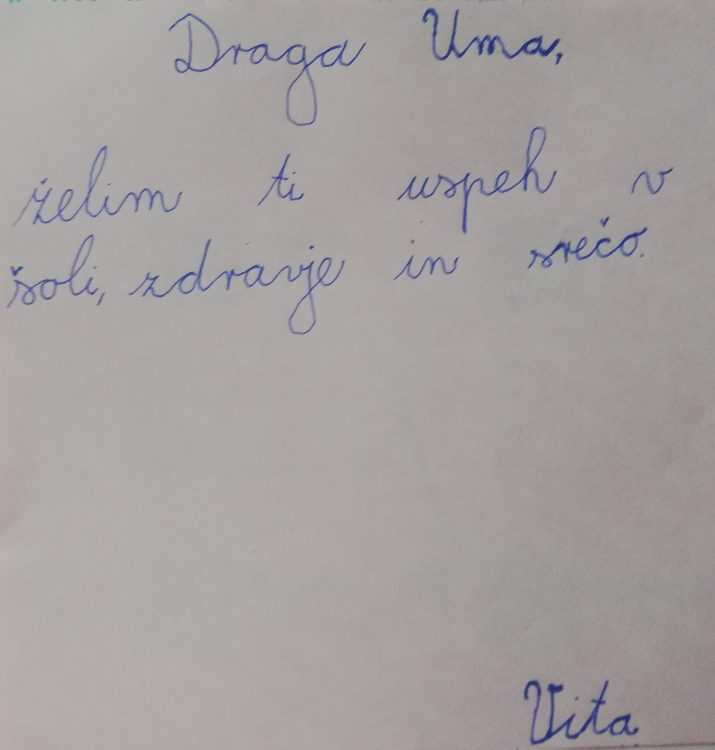 Draga Uma,
želim ti uspeh v
šoli, zdravje in srečo.
Vita